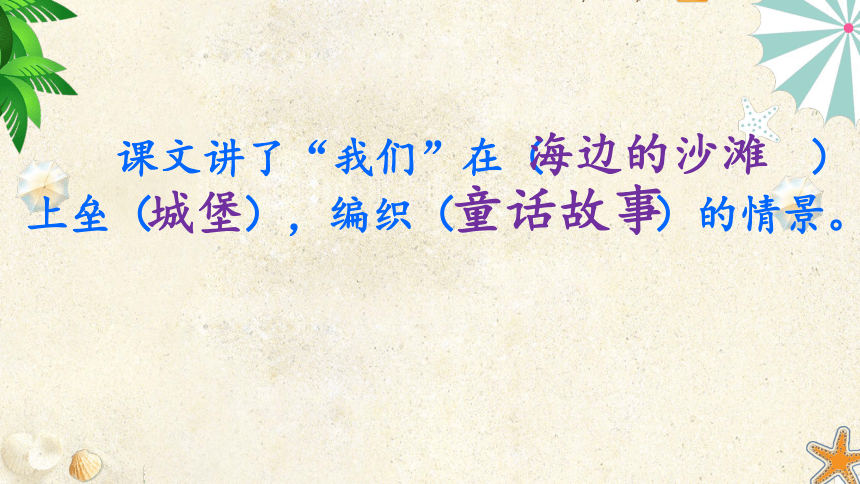 课文讲了“我们”在（海边的沙滩 ）
上垒（城堡），编织（童话故事）的情景。